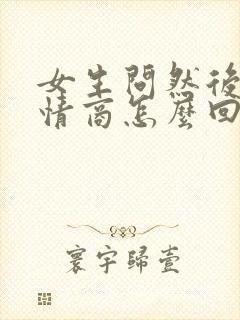 女生問然後
情商怎麼回
寰宇歸壹